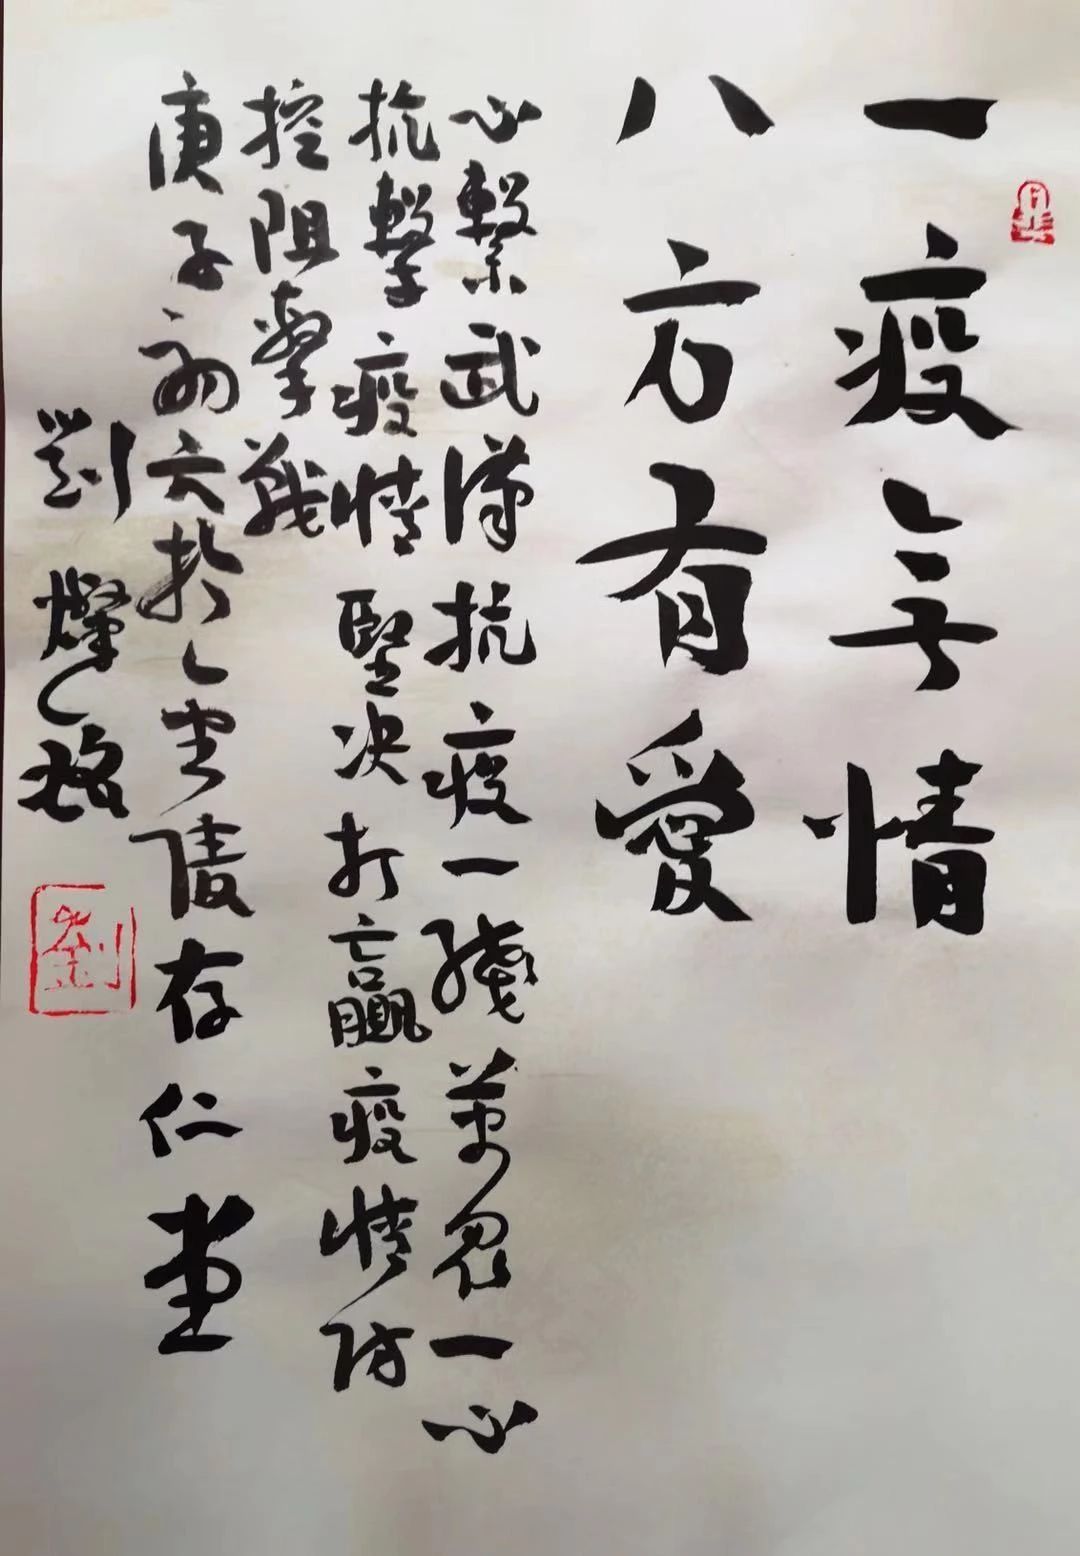 一疫無情
八方有愛
心繫武漢抗疫一綫萬眾一心
抗擊疫情堅决打贏疫情防
控阻擊戰
庚子初六於金陵存仁堂
劉燦銘
劉